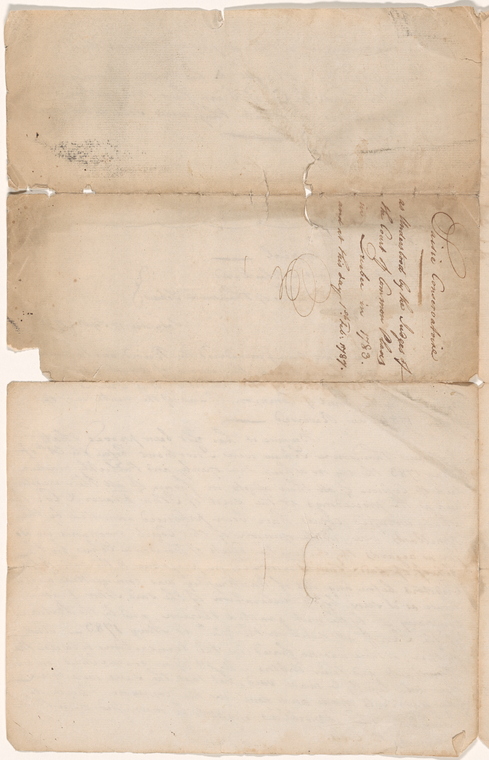 Saisie Conservatoire
as Understood by the Judges of
the Court of Common Pleas
in Quebec in 1783.
and at this day 1st Feb. 1787.